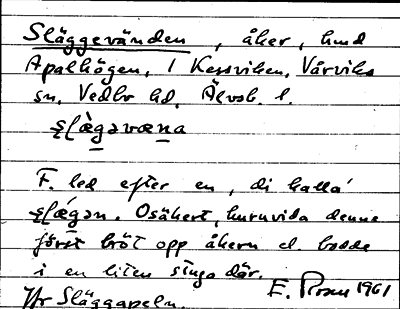 Släggevänden, åker, hmd
Apalhögen, 1 Kessviken, Vårviks
sn, Vedbo hd, Älvsb. l.
şlæ̀gəvæna
F. led efter en, di kalla'
şlæ̀gən. Osäkert, huruvida denne
först bröt opp åkern el. bodde
i en liten stuga där.
Jfr Släggapeln. E. 1961